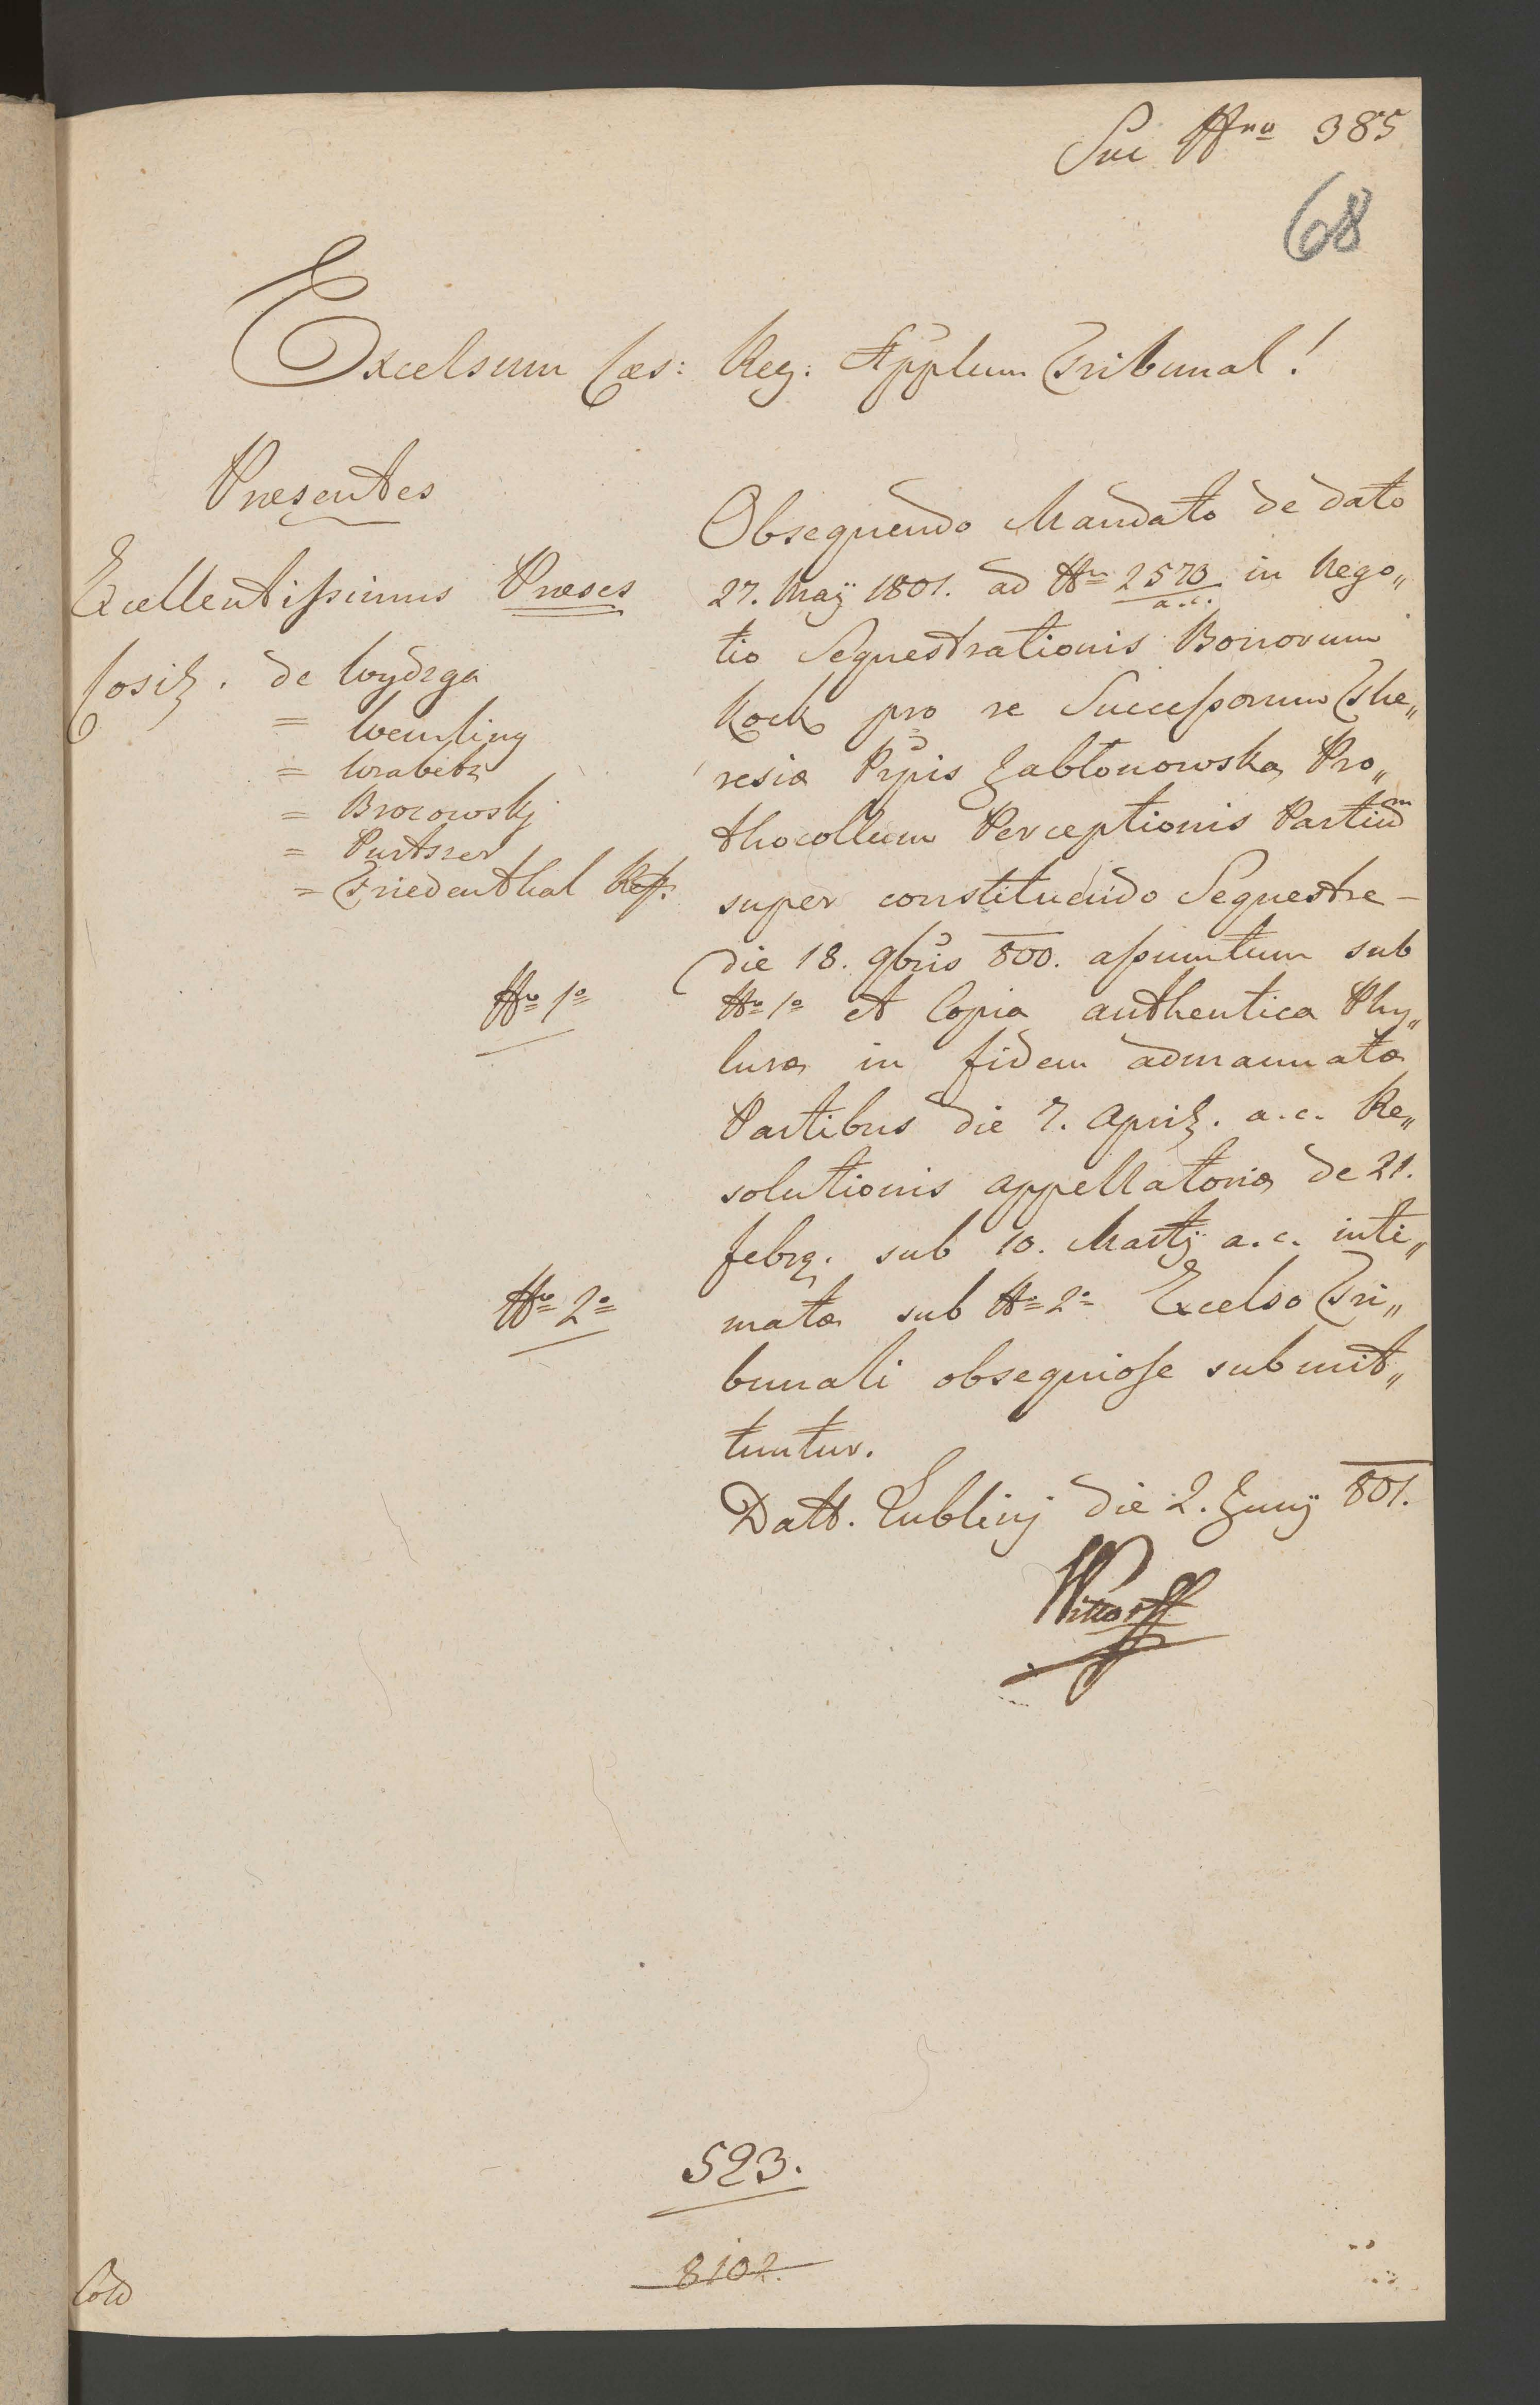 Sui Nro 385
68
Excelsum Cæs: Reg: Applum Tribunal!
Præsentes
Excellentissimus Præses
Cosil. de Wydzga
= Wrabetz
= Brozowskj
= Purtscer
= Friedenthal Ref.
Obsequendo Mandato de dato
27. Maÿ 1801. ad Nr 2573 in Nego„
a.c.
tio Sequestrationis Bonorum
Kock pro re Successorum The„
resiæ Prpis Jabłonowska Pro„
thocollum Perceptionis Partium
super constituendo Sequestre –
die 18. 9bris 800. assumtum sub
Nro 1o et Copia authentica Phy„
luræ in fidem admanuatæ
Partibus die 7. April. a.c. Re„
solutionis appellatoriæ de 21.
febrg. sub 10. Martÿ a.c. inti„
matæ sub Nro 2o Excelso Tri„
bunali obsequiose submit„
tuntur.
Datt. Lublinj die 2. Junÿ 801.
Nro 1o
Nro 2o
523.
8102.